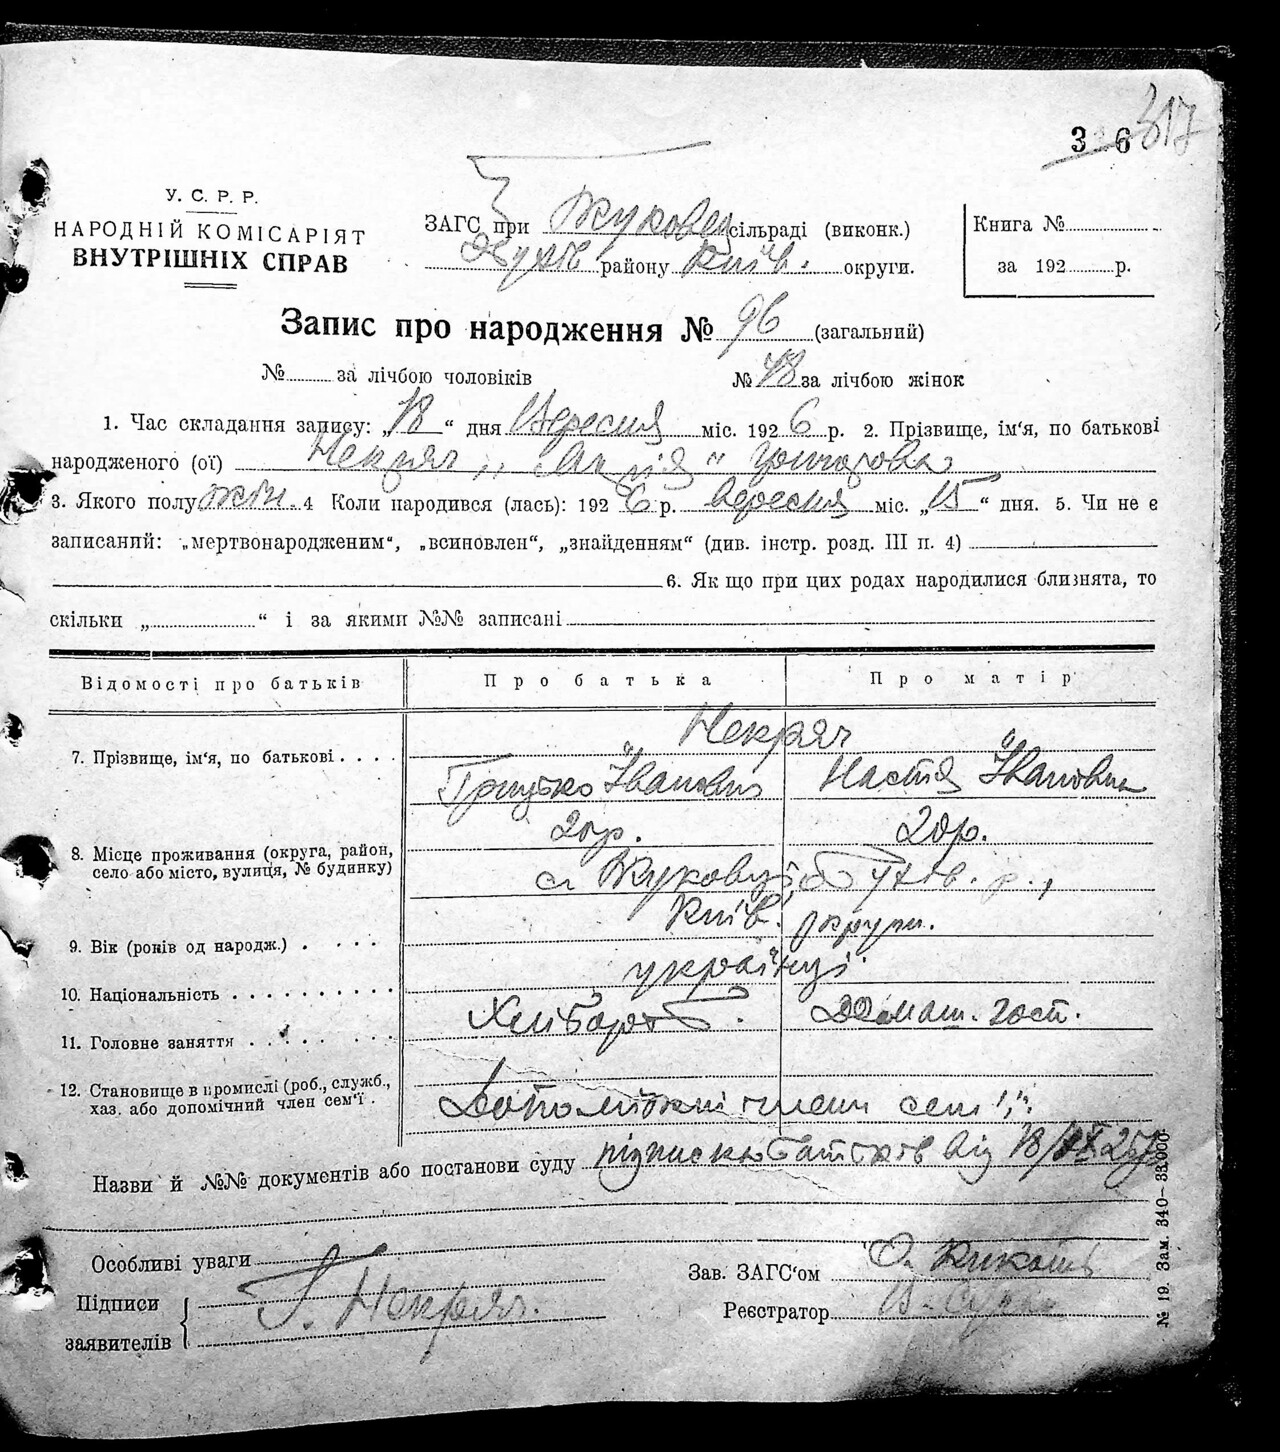 317
3 6
У. С. Р. Р.
НАРОДНІЙ КОМІСАРІЯТ
ВНУТРІШНІХ СПРАВ
ЗАГС при Жуковец сільраді (виконк.)
району Київ. округи.
Книга №
за 192 р.
Запис про народження № 96 (загальний)
№ за лічбою чоловіків
№ 48 за лічбою жінок
1. Час складання запису: „18“ дня Вересня міс. 1926 р. 2. Прізвище, ім'я, по батькові
народженого (ої) Некряч „ “ Григорова
3. Якого полу жін. 4 Коли народився (лась): 1926 р. вересня міс. „15“ дня. 5. Чи не є
записаний: „мертвонародженим“, „всиновлен“, „знайденням“ (див. інстр. розд. III п. 4)
6. Як що при цих родах народилися близнята, то
скільки „ “ і за якими №№ записані
Відомості про батьків
Про батька
Про матір
7. Прізвище, ім'я, по батькові
Некряч
Грицько Іванович
Настя Івановна
20р.
20р.
8. Місце проживання (округа, район,
село або місто, вулиця, № будинку)
с. Жуковці р.,
Київ. округи.
9. Вік (років од народж.)
українці
10. Національність
Хлібороб.
Домаш. госп.
11. Головне заняття
12. Становище в промислі (роб., служб.,
хаз. або допомічний член сем'ї
Допоміжні члени сем'ї.
Назви й №№ документів або постанови суду підписка батьків від 18/IX
Особливі уваги
Підписи
заявителів
Г. Некряч.
Зав. ЗАГС'ом О.
Реєстратор
№ 19. Зам. 340—33.000.